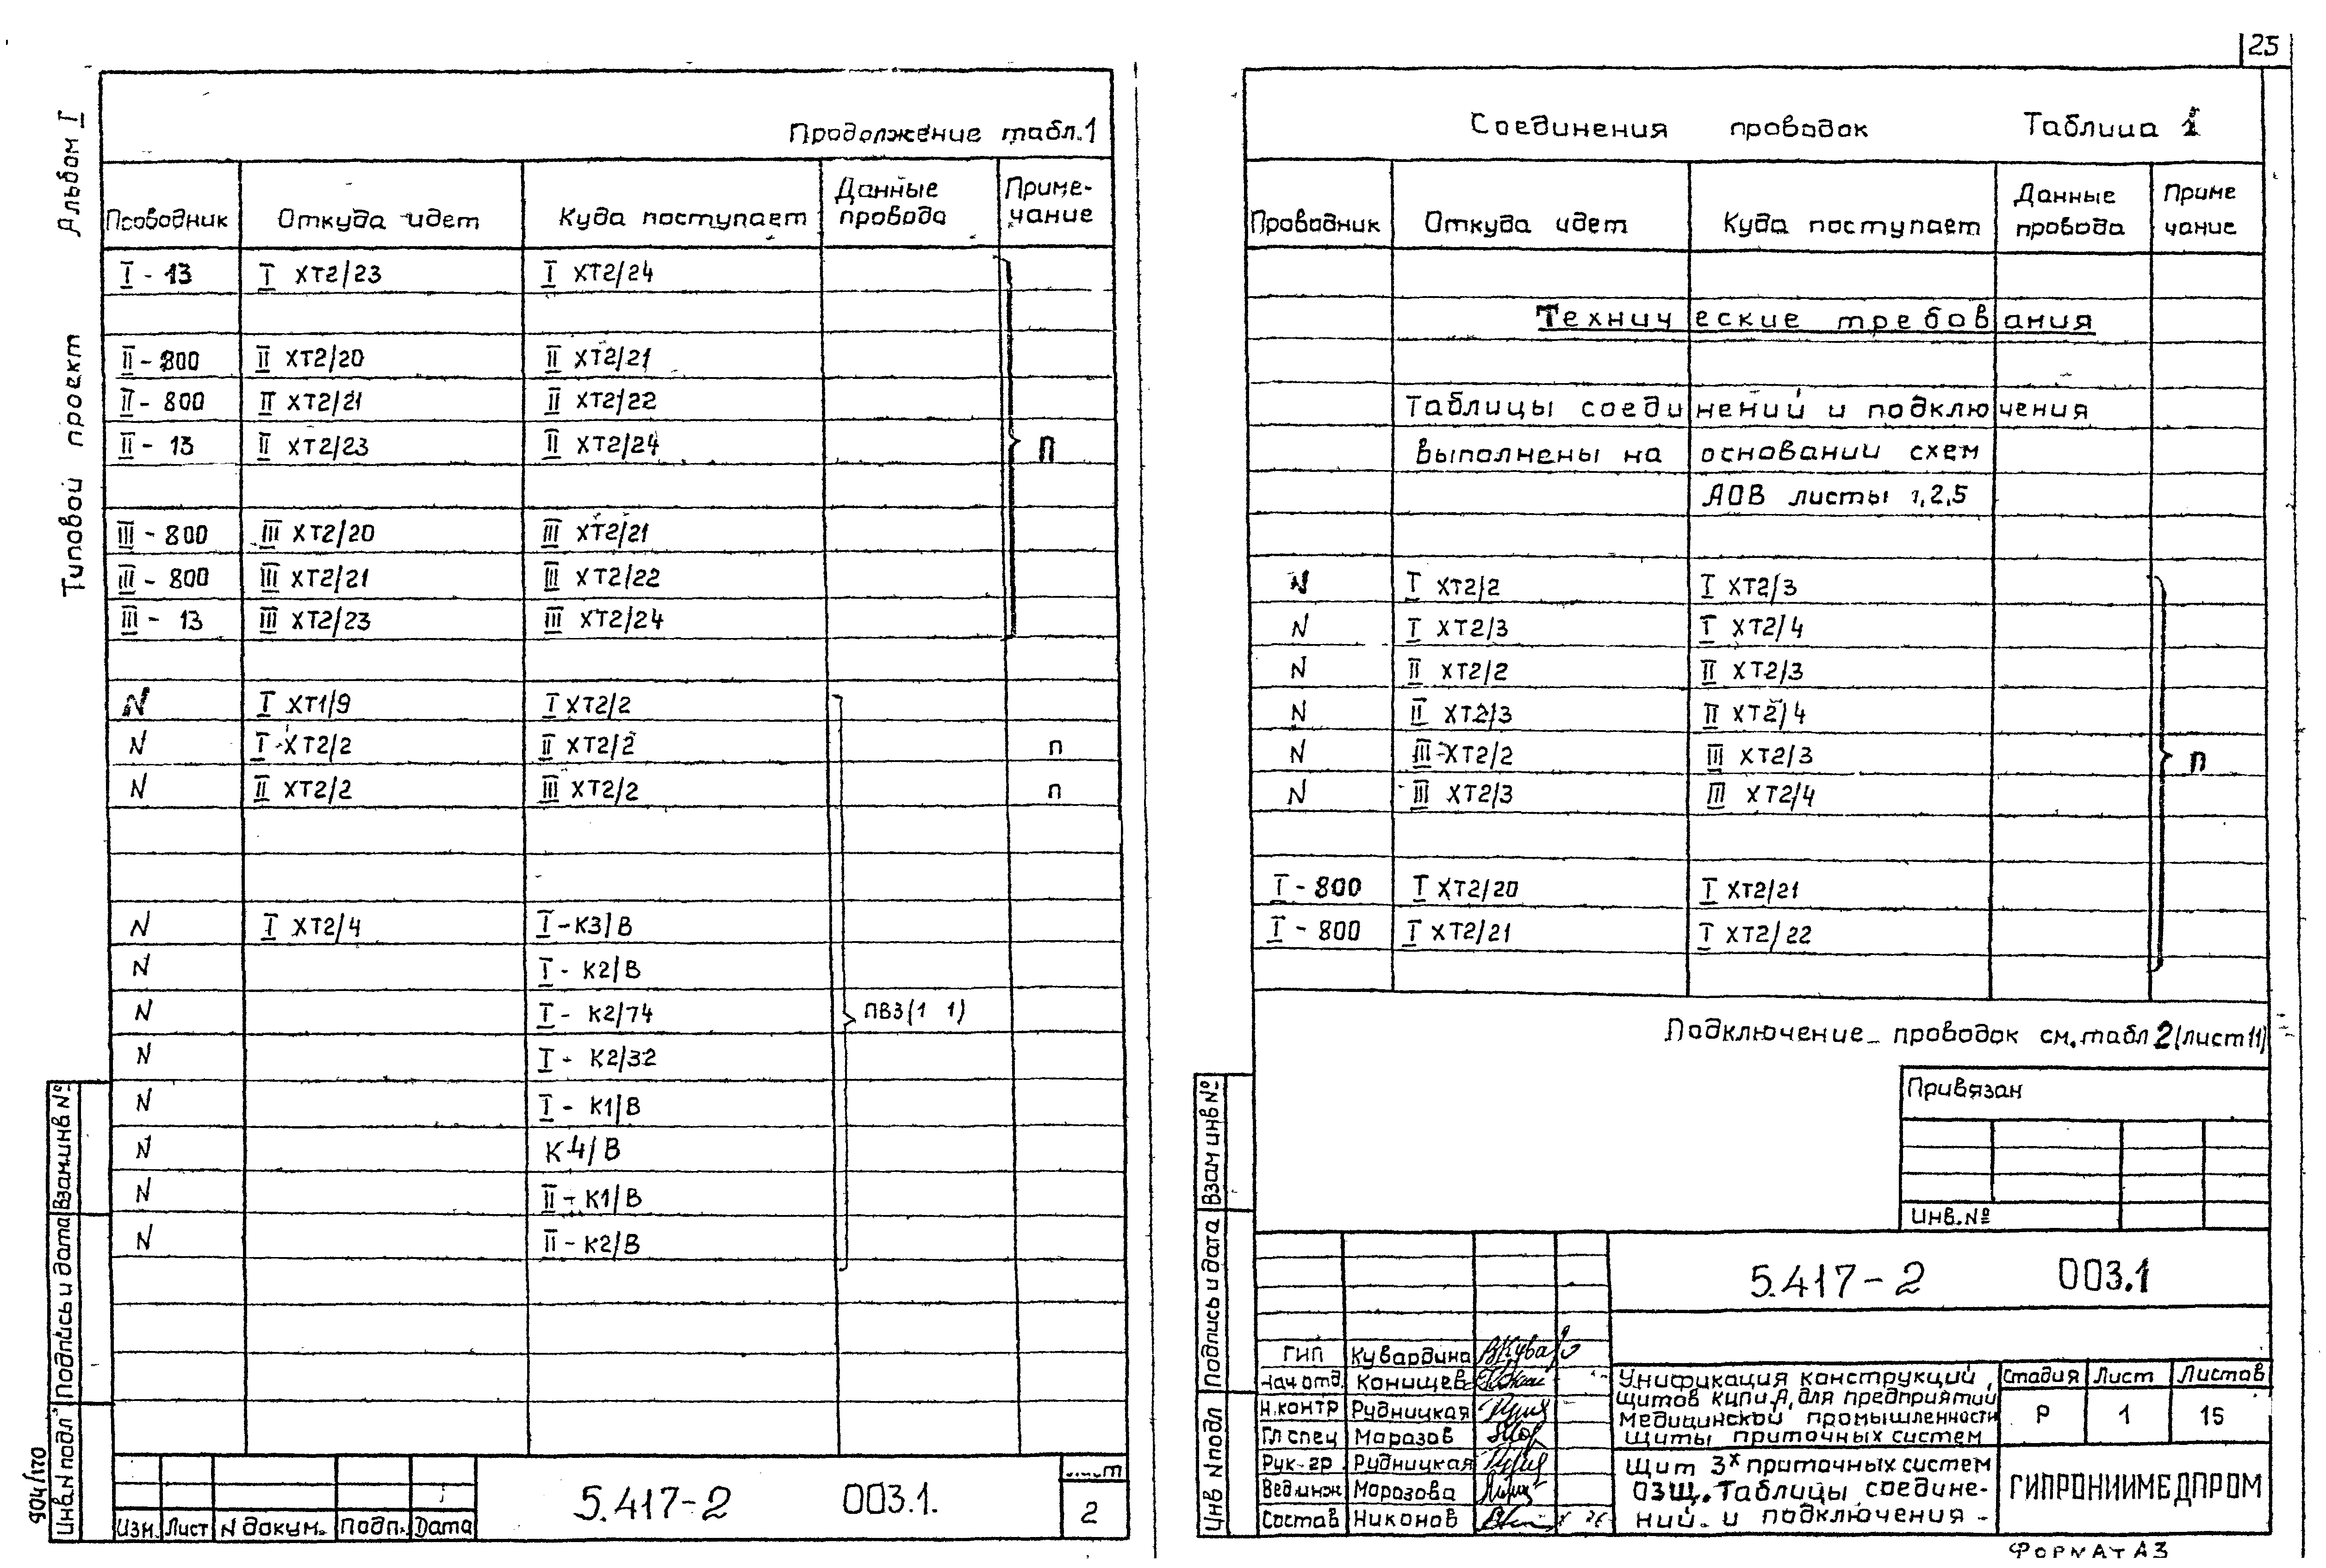 25
Альбом I
Типовой проект
Продолжение табл.1
Проводник Откуда идет Куда поступает Данные провода Приме-чание
I - 13 I XT2/23 I XT2/24
II - 800 II XT2/20 II XT2/21
II - 800 II XT2/21 II XT2/22
II - 13 II XT2/23 II XT2/24 П
III - 800 III XT2/20 III XT2/21
III - 800 III XT2/21 III XT2/22
III - 13 III XT2/23 III XT2/24
N I XT1/9 I XT2/2
N I XT2/2 II XT2/2 п
N II XT2/2 III XT2/2 п
N I XT2/4 I - К3/В
N I - К2/В
N I - К2/74 ПВ3(1 1)
N I - К2/32
N I - К1/В
N К4/В
N II - К1/В
N II - К2/В
Инв.N подл Подпись и дата Взам.инв №
904/170
Изм. Лист N докум. Подп. Дата
5.417-2 003.1.
2
Соединения проводок Таблица 1
Проводник Откуда идет Куда поступает Данные провода Приме чание
Технические требования
Таблицы соединений и подключения
выполнены на основании схем
АОВ листы 1,2,5
N I XT2/2 I XT2/3
N I XT2/3 I XT2/4
N II XT2/2 II XT2/3
N II XT2/3 II XT2/4
N III XT2/2 III XT2/3 П
N III XT2/3 III XT2/4
I - 800 I XT2/20 I XT2/21
I - 800 I XT2/21 I XT2/22
Подключение проводок см. табл 2 (лист 11)
Привязан
Инв.№
Инв N подл Подпись и дата Взам инв №
5.417-2 003.1
ГИП Кувардина
Нач отд. Конищев
Н.контр Рудницкая
Гл спец Марозов
Рук-гр Рудницкая
Вед.инж Марозова
Состав Никонов
Унификация конструкций,
щитов КИПиА, для предприятий
медицинской промышленности
Щиты приточных систем
Стадия Лист Листов
Р 1 15
Щит 3х приточных систем
ОЗЩ. Таблицы соедине-
ний и подключения
ГИПРОНИИМЕДПРОМ
ФОРМАТ А3